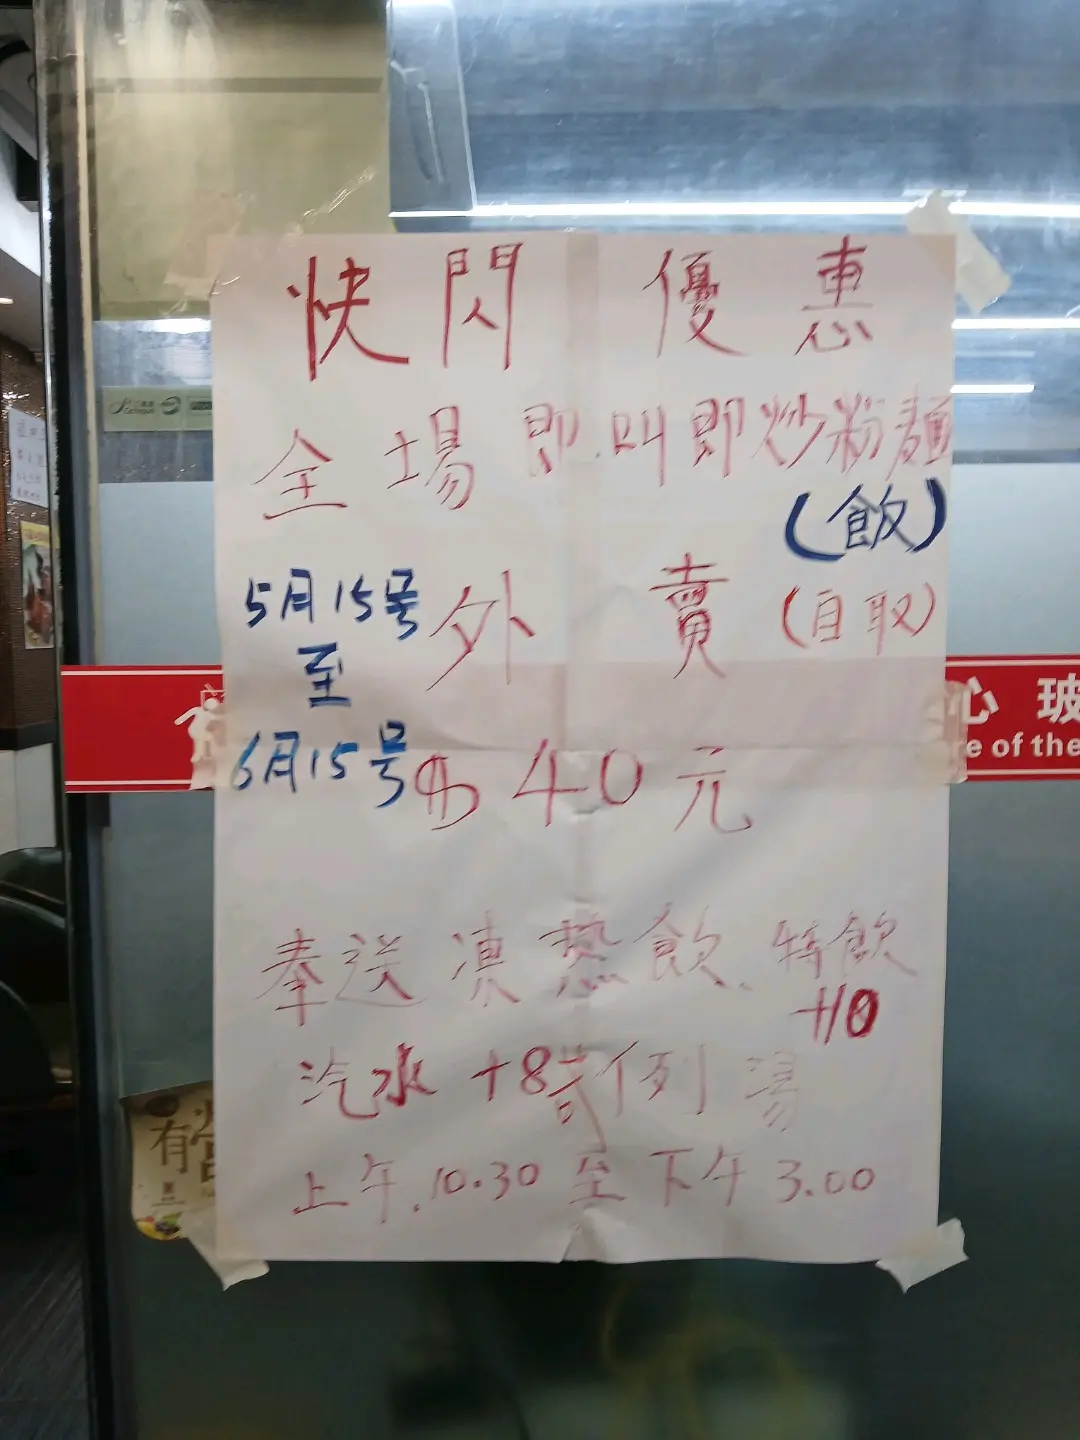 快閃優惠
全場即叫即炒粉麵
(飯)
5月15号
至
6月15号
外賣(自取)
$40元
奉送凍热飲、特飲
+10
汽水+8
或例湯
上午.10.30至下午3.00
心玻
re of the
有營
Octopus